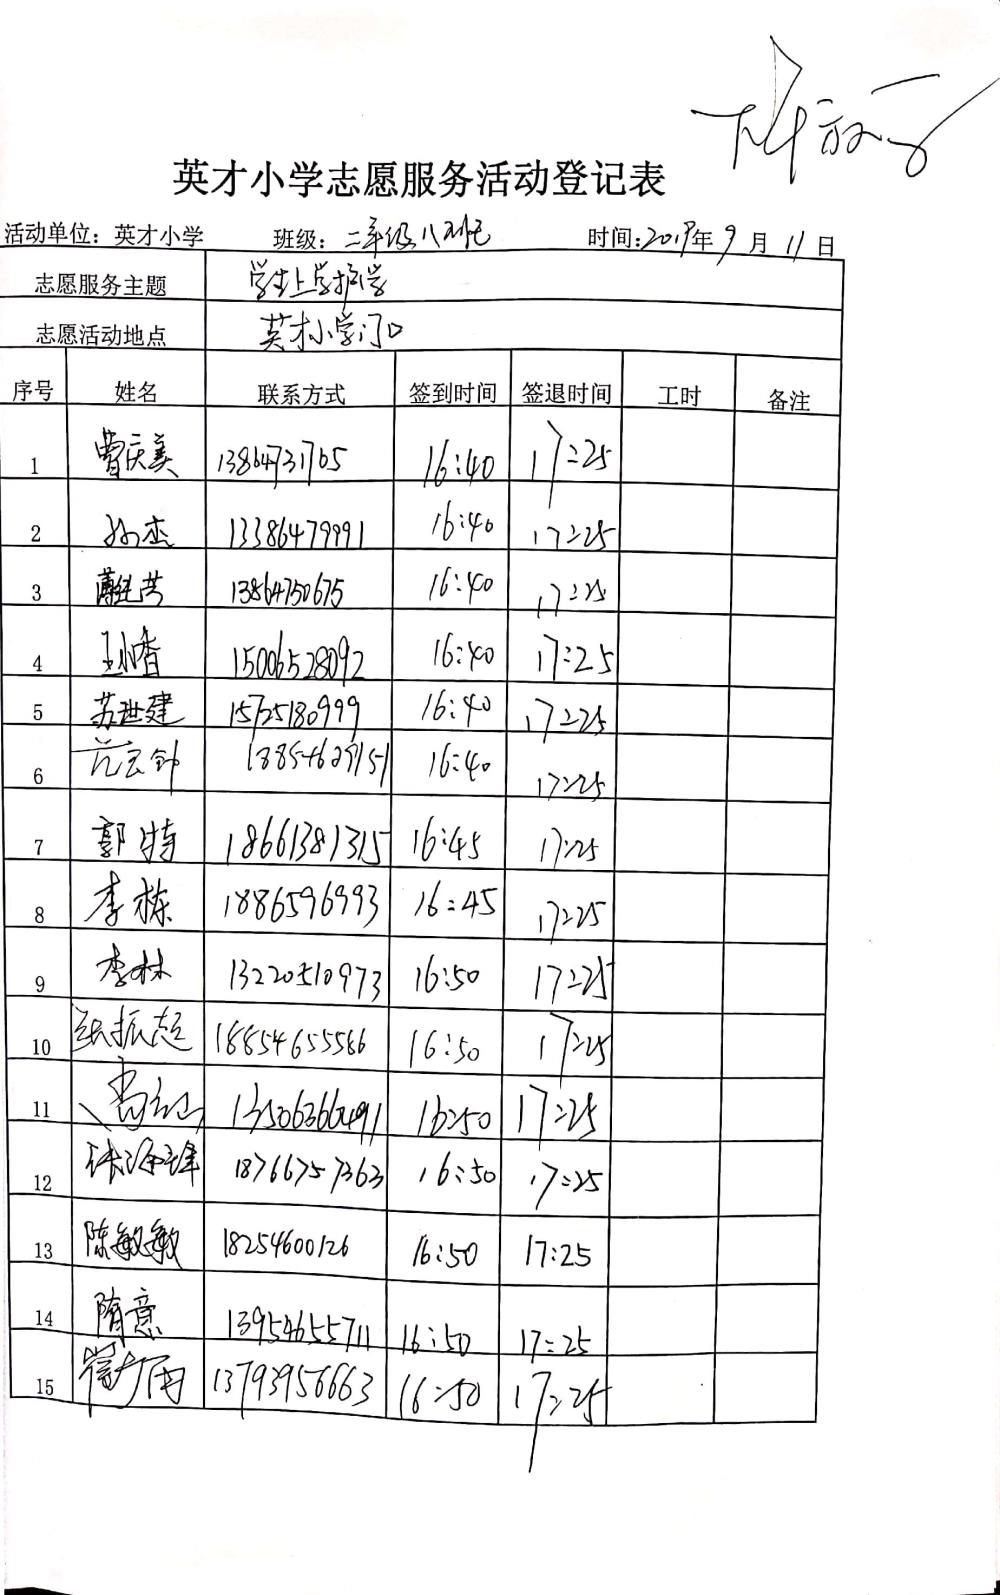 英才小学志愿服务活动登记表
活动单位：英才小学 班级：二年级八班 时间：2019年9月11日
志愿服务主题 学生上学护学
志愿活动地点 英才小学门口
序号 姓名 联系方式 签到时间 签退时间 工时 备注
1 曹庆美 13864731765 16:40 17:25
2 孙杰 13386479991 16:40 17:25
3 13864750675 16:40 17:25
4 王小香 15006528092 16:40 17:25
5 苏世建 15725180999 16:40 17:25
6 16:40 17:25
7 郭特 18661381315 16:45 17:25
8 李栋 1886596993 16:45 17:25
9 李林 13220510973 16:50 17:25
10 张振超 18854655566 16:50 17:25
11 16:50 17:25
12 18766757363 16:50 17:25
13 陈敏敏 18254600126 16:50 17:25
14 隋意 13954655711 16:50 17:25
15 13793956663 16:50 17:25